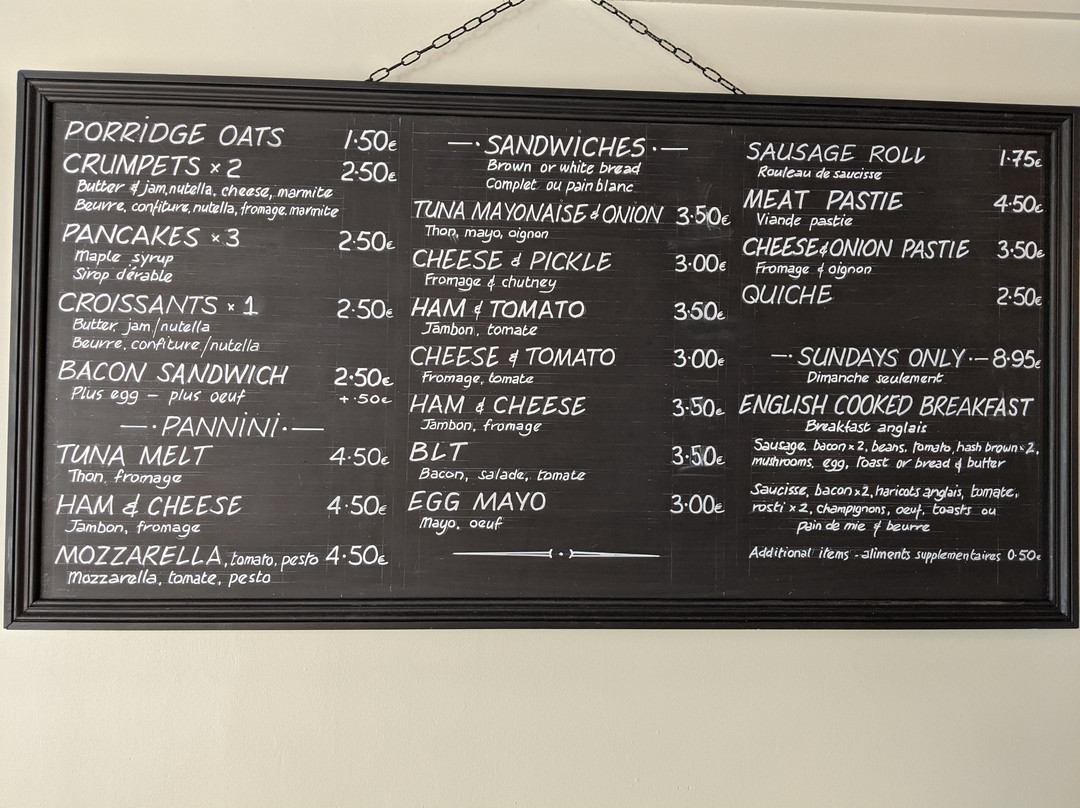 PORRIDGE OATS 1.50€
CRUMPETS x 2 2.50€
Butter & jam, nutella, cheese, marmite
Beurre, confiture, nutella, fromage, marmite
PANCAKES x 3 2.50€
Maple syrup
Sirop d'érable
CROISSANTS x 1 2.50€
Butter jam/nutella
Beurre, confiture/nutella
BACON SANDWICH 2.50€
Plus egg - plus oeuf +.50€
PANNINI
TUNA MELT 4.50€
Thon, fromage
HAM & CHEESE 4.50€
Jambon, fromage
MOZZARELLA, tomato, pesto 4.50€
Mozzarella, tomate, pesto
SANDWICHES
Brown or white bread
Complet ou pain blanc
TUNA MAYONAISE & ONION 3.50€
Thon, mayo, oignon
CHEESE & PICKLE 3.00€
Fromage & chutney
HAM & TOMATO 3.50€
Jambon, tomate
CHEESE & TOMATO 3.00€
Fromage, tomate
HAM & CHEESE 3.50€
Jambon, fromage
BLT 3.50€
Bacon, salade, tomate
EGG MAYO 3.00€
Mayo, oeuf
SAUSAGE ROLL 1.75€
Rouleau de saucisse
MEAT PASTIE 4.50€
Viande pastie
CHEESE & ONION PASTIE 3.50€
Fromage & oignon
QUICHE 2.50€
SUNDAYS ONLY 8.95€
Dimanche seulement
ENGLISH COOKED BREAKFAST
Breakfast anglais
Sausage, bacon x 2, beans, tomato, hash brown x 2,
mushrooms, egg, toast or bread & butter
Saucisse, bacon x 2, haricots anglais, tomate,
rosti x 2, champignons, oeuf, toasts ou
pain de mie & beurre
Additional items - aliments supplementaires 0.50€